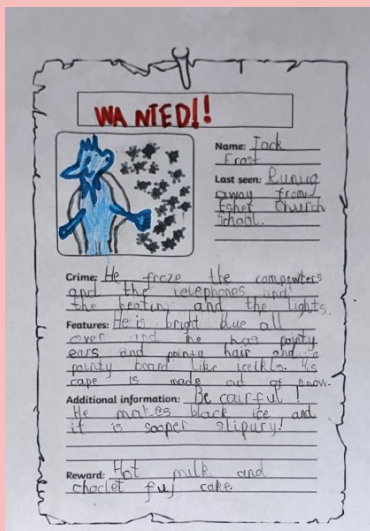 WANTED!!
Name: Jack
Frost
Last seen: Runing
away from
Esher Church
School.
Crime: He froze the compewters
and the telephones and
the heating and the lights.
Features: He is bright blue all
over and he has pointy
ears and pointy hair and a
pointy beard like iceikls. His
cape is made out of snow.
Additional information: Be cairful!
He makes black ice and
it is sooper slipury!
Reward: Hot milk and
choclet fuj cake.